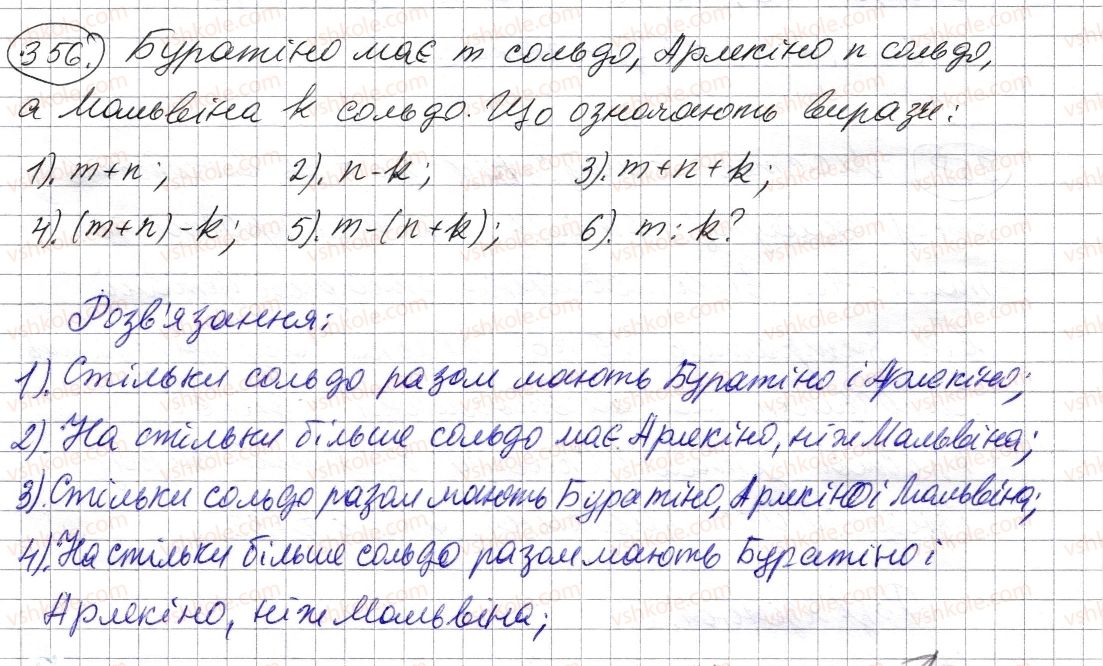 356. Буратіно має m сольдо, Арлекіно n сольдо,
а Мальвіна k сольдо. Що означають вирази:
1). m+n; 2). n-k; 3). m+n+k;
4). (m+n)-k; 5). m-(n+k); 6). m:k?
Розв'язання:
1). Стільки сольдо разом мають Буратіно і Арлекіно;
2). На стільки більше сольдо має Арлекіно, ніж Мальвіна;
3). Стільки сольдо разом мають Буратіно, Арлекіно і Мальвіна;
4). На стільки більше сольдо разом мають Буратіно і
Арлекіно, ніж Мальвіна;